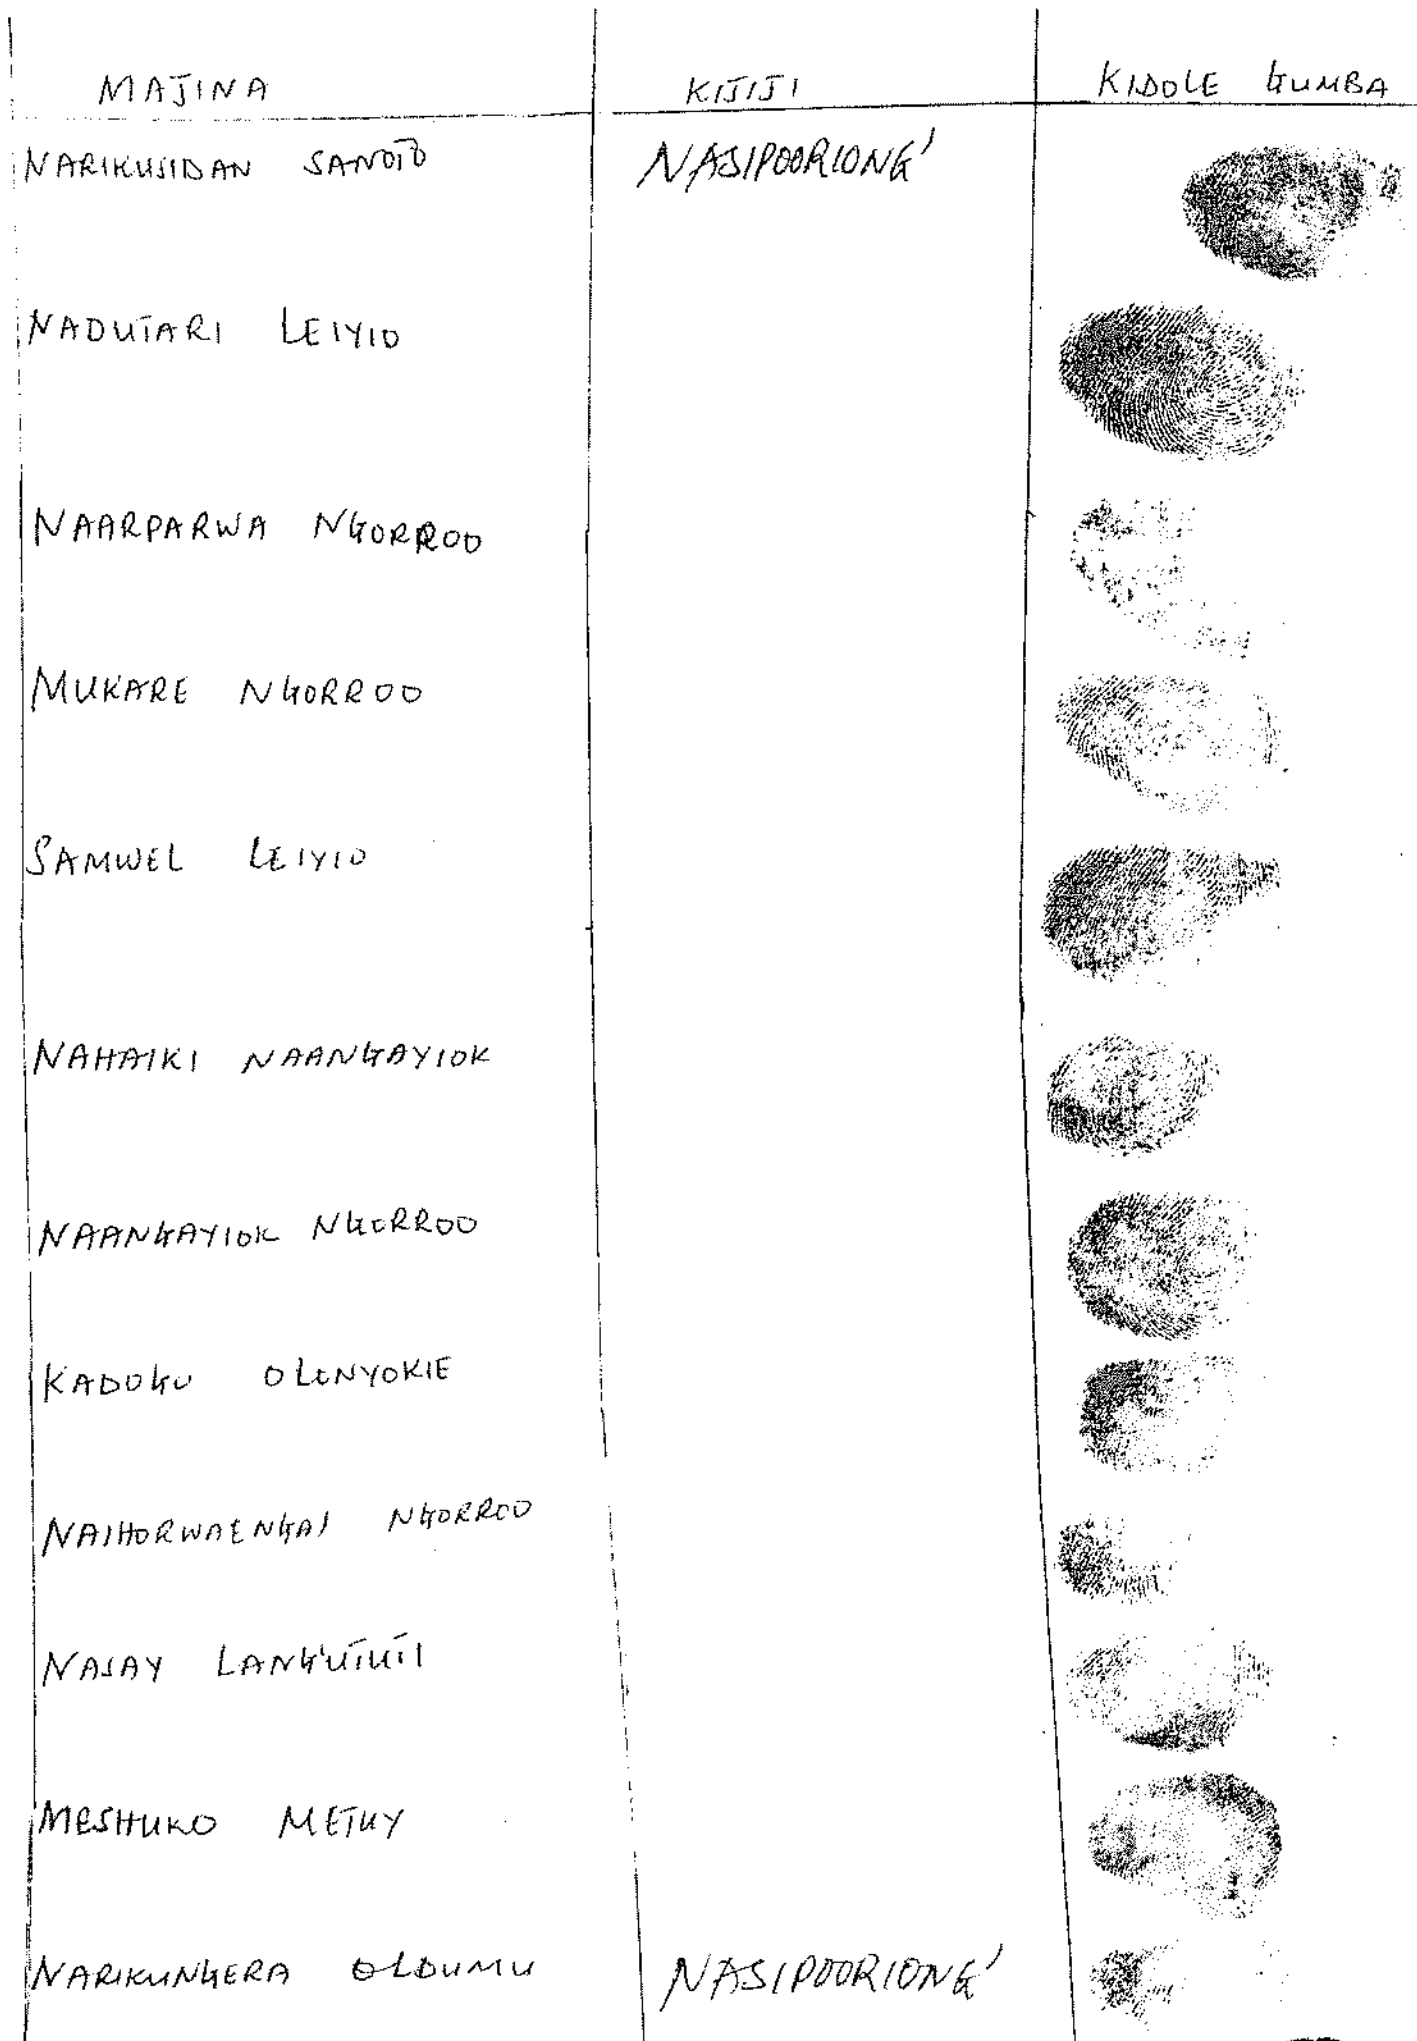 MAJINA KIJIJI KIDOLE GUMBA
NARIKUSIDAN SANOTO NASIPOORIONG'
NADUTARI LEIYIO
NAARPARWA NGORROO
MUKARE NGORROO
SAMWEL LEIYIO
NAHATKI NAANGAYIOK
NAANGAYIOK NGORROO
KADOGU OLONYOKIE
NAIHORWAENGAI NGORROO
NASAY LANG'UTUTI
MESHUKO METUY
NARIKUNGERA OLDUMU NASIPOORIONG'